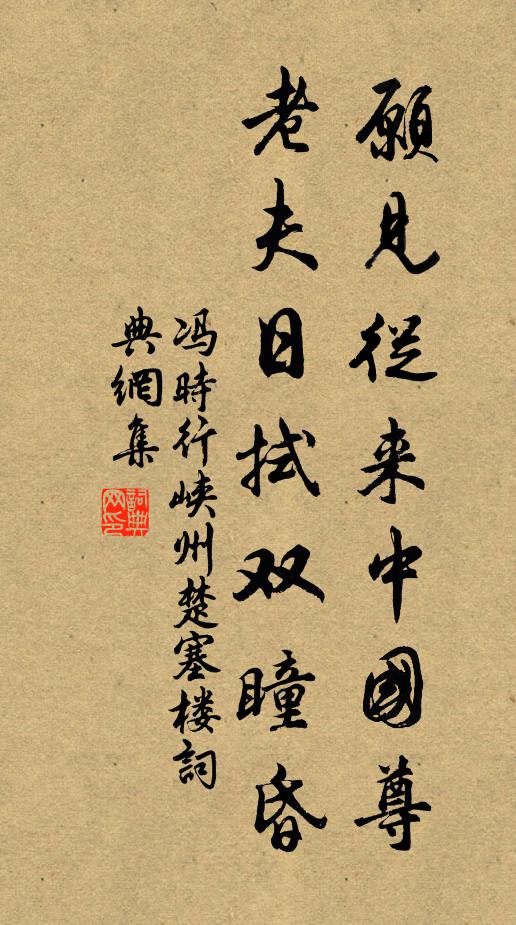 願見從来中國尊
老夫日拭双瞳昏
冯時行峡州楚塞楼詞
典網集
詞典
网印